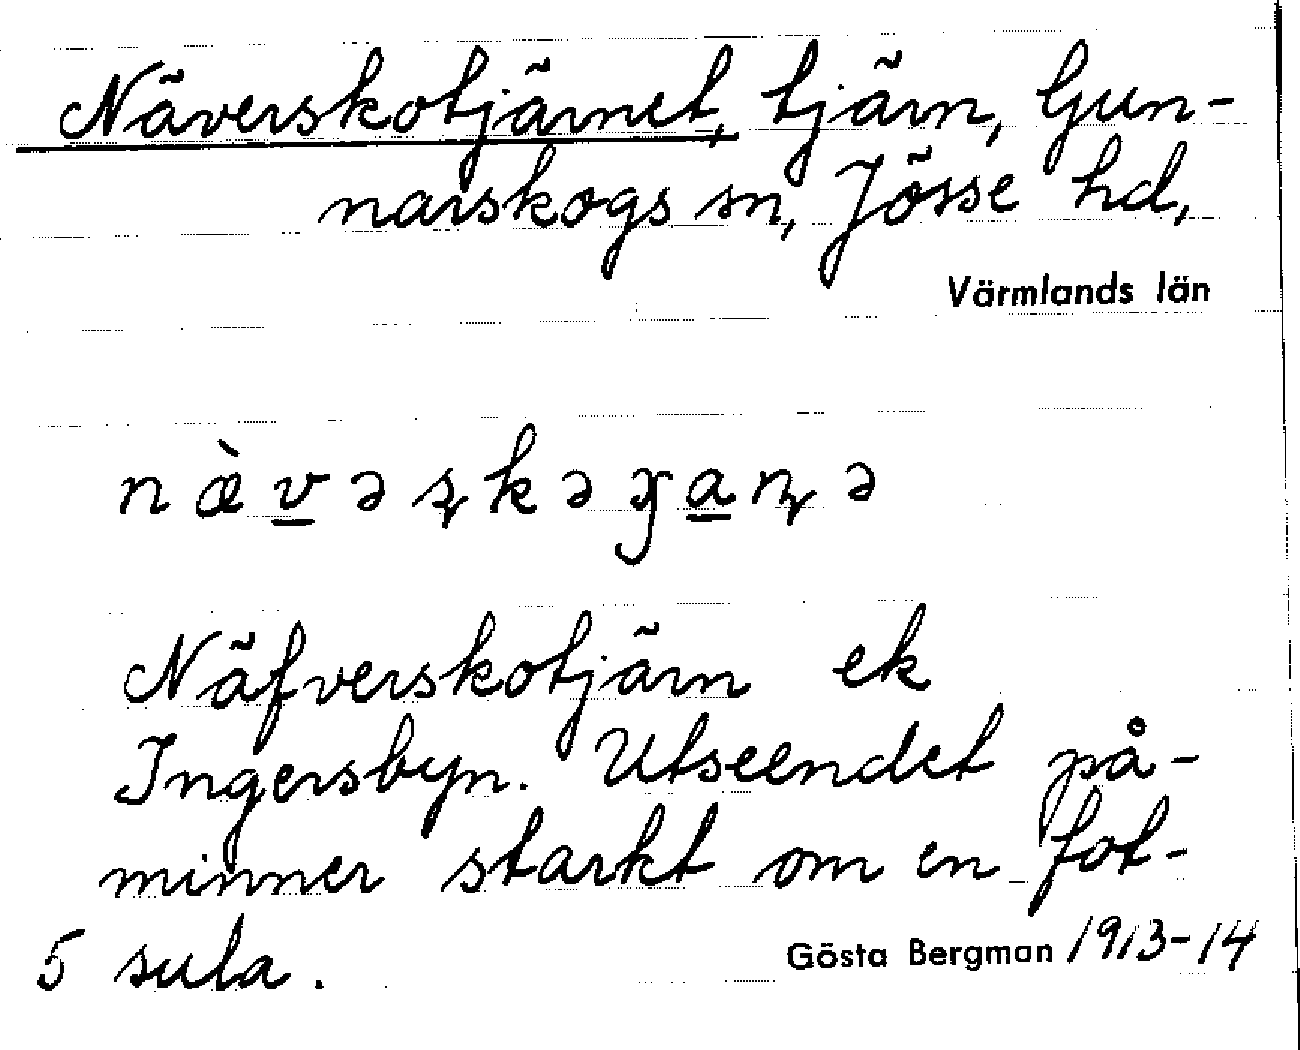 Näverskotjärnet, tjärn, Gun-
narskogs sn, Jösse hd,
Värmlands län
Näfverskotjärn ek
Ingersbyn. Utseendet på-
minner starkt om en fot-
5 sula.
Gösta Bergman 1913-14